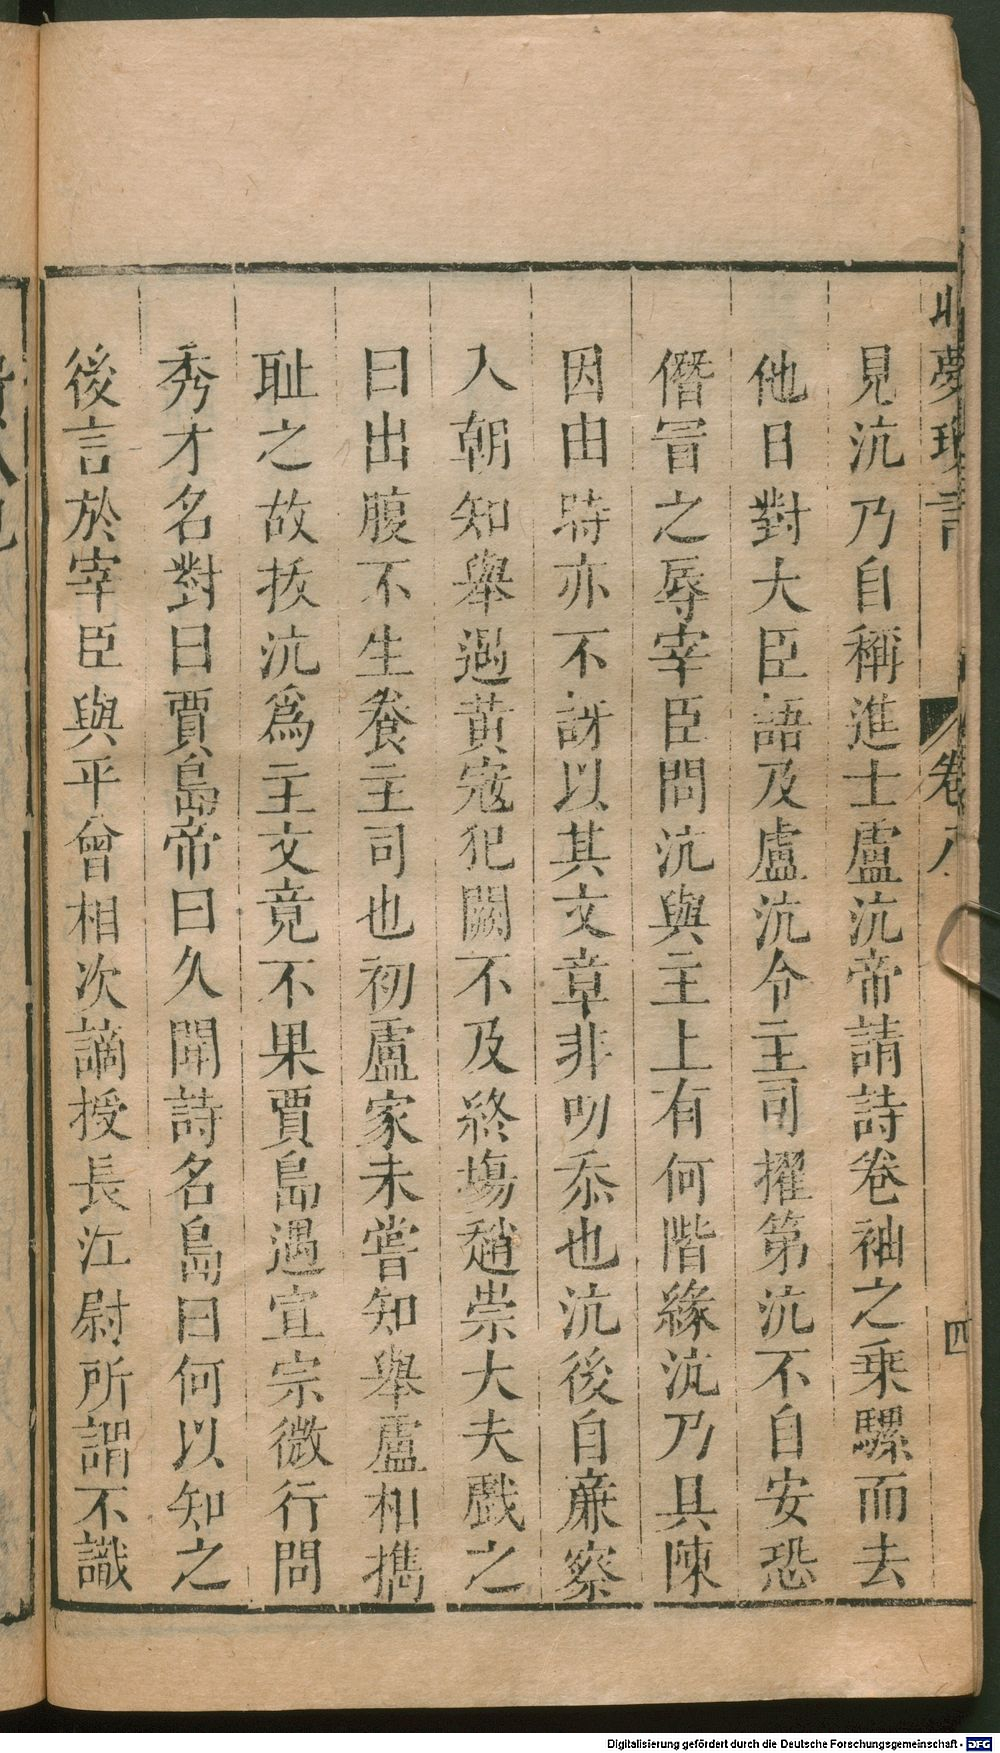 北夢瑣言
卷八
四
見沆乃自稱進士盧沆帝請詩卷袖之乗騾而去
他日對大臣語及盧沆令主司擢第沆不自安恐
僭冒之辱宰臣問沆與主上有何階緣沆乃具陳
因由時亦不訝以其文章非叨忝也沆後自亷察
入朝知舉遇黃寇犯闕不及終塲趙崇大夫戲之
曰出腹不生養主司也初盧家未嘗知舉盧相攜
耻之故拔沆爲主文竟不果賈島遇宣宗微行問
秀才名對曰賈島帝曰久聞詩名島曰何以知之
後言於宰臣與平曾相次謫授長江尉所謂不識
Digitalisierung gefördert durch die Deutsche Forschungsgemeinschaft - DFG